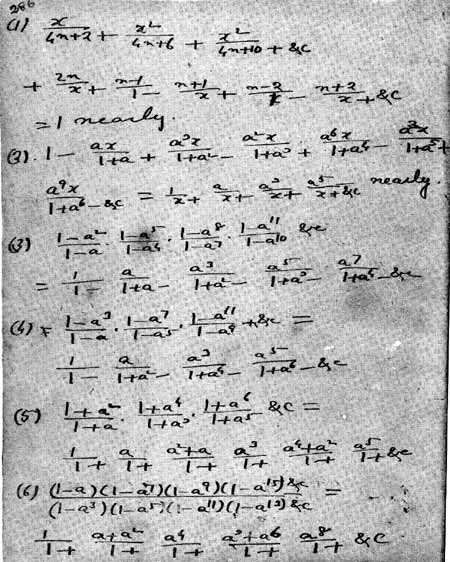 286
(1) x/4n+2 + x²/4n+6 + x²/4n+10 + &c
+ 2n/x + n-1/1 - n+1/x + n-2/1 - n+2/x + &c
= 1 nearly.
(2). 1 - ax/1+a + a³x/1+a² - a²x/1+a³ + a⁶x/1+a⁴ - a³x/1+a⁵ +
a⁹x/1+a⁶ - &c = 1/x + a/x + a³/x + a⁵/x + &c nearly.
(3) 1-a²/1-a · 1-a⁵/1-a⁴ · 1-a⁸/1-a⁷ · 1-a¹¹/1-a¹⁰ &c
= 1/1 - a/1+a - a³/1+a² - a⁵/1+a³ - a⁷/1+a⁴ - &c
(4) 1-a³/1-a · 1-a⁷/1-a⁵ · 1-a¹¹/1-a⁹ · &c =
1/1 - a/1+a² - a³/1+a⁴ - a⁵/1+a⁶ - &c
(5) 1+a²/1+a · 1+a⁴/1+a³ · 1+a⁶/1+a⁵ &c =
1/1 + a/1 + a²+a/1 + a³/1 + a⁴+a²/1 + a⁵/1 + &c
(6) (1-a)(1-a⁷)(1-a⁹)(1-a¹⁵)&c/(1-a³)(1-a⁵)(1-a¹¹)(1-a¹³)&c =
1/1 + a+a²/1 + a⁴/1 + a³+a⁶/1 + a⁸/1 + &c